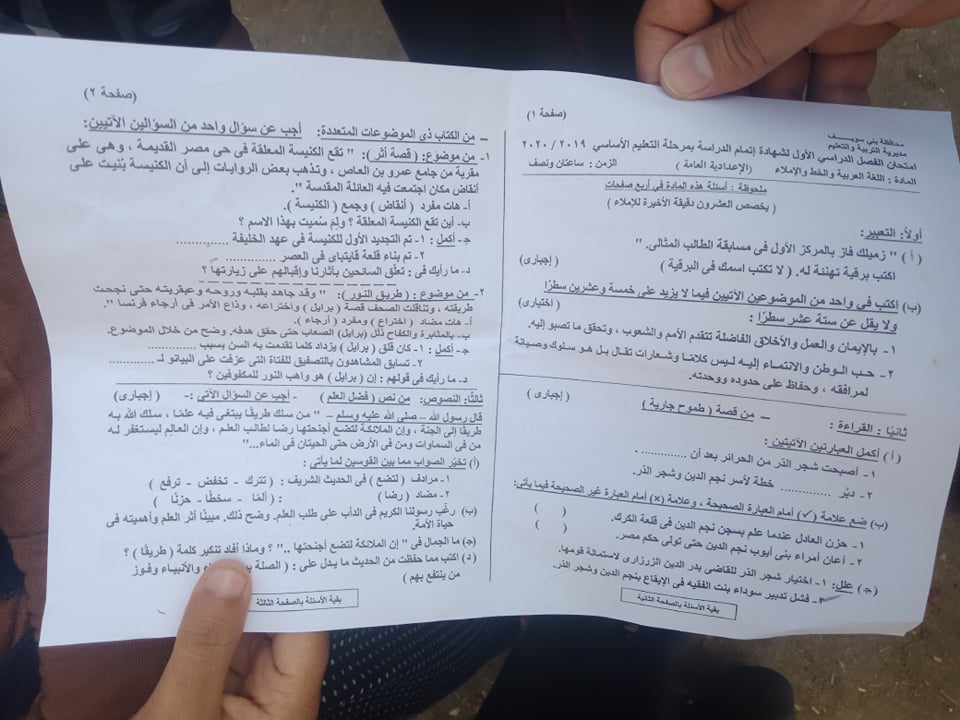 (صفحة ١)
محافظة بنى سويف
مديرية التربية والتعليم
امتحان الفصل الدراسي الأول لشهادة إتمام الدراسة بمرحلة التعليم الأساسي ٢٠١٩ / ٢٠٢٠
المادة : اللغة العربية والخط والإملاء (الإعدادية العامة ) الزمن : ساعتان ونصف
ملحوظة : أسئلة هذه المادة في أربع صفحات
( يخصص العشرون دقيقة الأخيرة للإملاء )
أولاً: التعبير:
( أ ) " زميلك فاز بالمركز الأول فى مسابقة الطالب المثالى. "
اكتب برقية تهنئة له. ( لا تكتب اسمك فى البرقية ) (إجبارى)
(ب) اكتب في واحد من الموضوعين الآتيين فيما لا يزيد على خمسة وعشرين سطرًا
ولا يقل عن ستة عشر سطرًا : (اختيارى)
١- بالإيمان والعمل والأخلاق الفاضلة تتقدم الأمم والشعوب ، وتحقق ما تصبو إليه.
٢- حب الوطن والانتماء إليه ليس كلامًا وشعارات تقال بل هو سلوك وصيانة
لمرافقه ، وحفاظ على حدوده ووحدته.
ثانيًا : القراءة : – من قصة ( طموح جارية ) ( إجبارى )
( أ ) أكمل العبارتين الآتيتين :
١- أصبحت شجر الدر من الحرائر بعد أن ............ .
٢- دبَّر ............ خطة لأسر نجم الدين وشجر الدر.
(ب) ضع علامة (✓) أمام العبارة الصحيحة ، وعلامة (×) أمام العبارة غير الصحيحة فيما يأتى:
١- حزن العادل عندما علم بسجن نجم الدين فى قلعة الكرك. ( )
٢- أعان أمراء بنى أيوب نجم الدين حتى تولى حكم مصر. ( )
(جـ) علل: ١- اختيار شجر الدر للقاضى بدر الدين الزرزارى لاستمالة قومها.
٢- فشل تدبير سوداء بنت الفقيه فى الإيقاع بنجم الدين وشجر الدر.
بقية الأسئلة بالصفحة الثانية
(صفحة ٢)
– من الكتاب ذي الموضوعات المتعددة: أجب عن سؤال واحد من السؤالين الآتيين:
١- من موضوع: ( قصة أثر ): " تقع الكنيسة المعلقة فى حى مصر القديمة ، وهى على
مقربة من جامع عمرو بن العاص ، وتذهب بعض الروايات إلى أن الكنيسة بُنيت على
أنقاض مكان اجتمعت فيه العائلة المقدسة ".
أ- هات مفرد ( أنقاض ) وجمع ( الكنيسة ).
ب- أين تقع الكنيسة المعلقة ؟ ولِمَ سُميت بهذا الاسم ؟
جـ- أكمل : ١- تم التجديد الأول للكنيسة فى عهد الخليفة ............
٢- تم بناء قلعة قايتباى فى العصر ............
د- ما رأيك فى : تعلّق السائحين بآثارنا وإقبالهم على زيارتها ؟
٢- من موضوع : ( طريق النور ): " وقد جاهد بقلبه وروحه وعبقريته حتى نجحت
طريقته ، وتناقلت الصحف قصة ( برايل ) واختراعه ، وذاع الأمر فى أرجاء فرنسا ".
أ- هات مضاد ( اختراع ) ومفرد ( أرجاء ).
ب- بالمثابرة والكفاح ذلل (برايل) الصعاب حتى حقق هدفه. وضح من خلال الموضوع.
جـ- أكمل : ١- كان قلق ( برايل ) يزداد كلما تقدمت به السن بسبب ............
٢- تسابق المشاهدون بالتصفيق للفتاة التى عزفت على البيانو لـ ............
د- ما رأيك فى قولهم : إن ( برايل ) هو واهب النور للمكفوفين ؟
ثالثًا: النصوص: من نص ( فضل العلم ) - أجب عن السؤال الآتى :- (إجبارى)
قال رسول الله – صلى الله عليه وسلم – " من سلك طريقًا يبتغى فيه علمًا ، سلك الله به
طريقًا إلى الجنة ، وإن الملائكة لتضع أجنحتها رضا لطالب العلم ، وإن العالِم ليستغفر له
من فى السماوات ومن فى الأرض حتى الحيتان فى الماء..."
(أ) تخيّر الصواب مما بين القوسين لما يأتى :
١- مرادف ( لتضع ) فى الحديث الشريف : ( تترك - تخفض - ترفع )
٢- مضاد ( رضا ) : ( ألمًا - سخطًا - حزنًا )
(ب) رغَّب رسولنا الكريم فى الدأب على طلب العلم. وضح ذلك. مبينًا أثر العلم وأهميته فى
حياة الأمة.
(جـ) ما الجمال فى " إن الملائكة لتضع أجنحتها .." ؟ وماذا أفاد تنكير كلمة ( طريقًا ) ؟
(د) اكتب مما حفظت من الحديث ما يدل على : ( الصلة والأنبياء وفوز
من ينتفع بهم )
بقية الأسئلة بالصفحة الثالثة